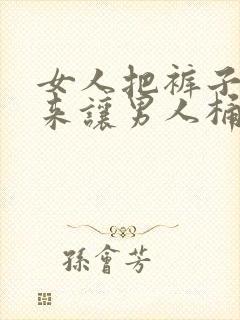 女人把裤子
来讓男人桶
孫會芳